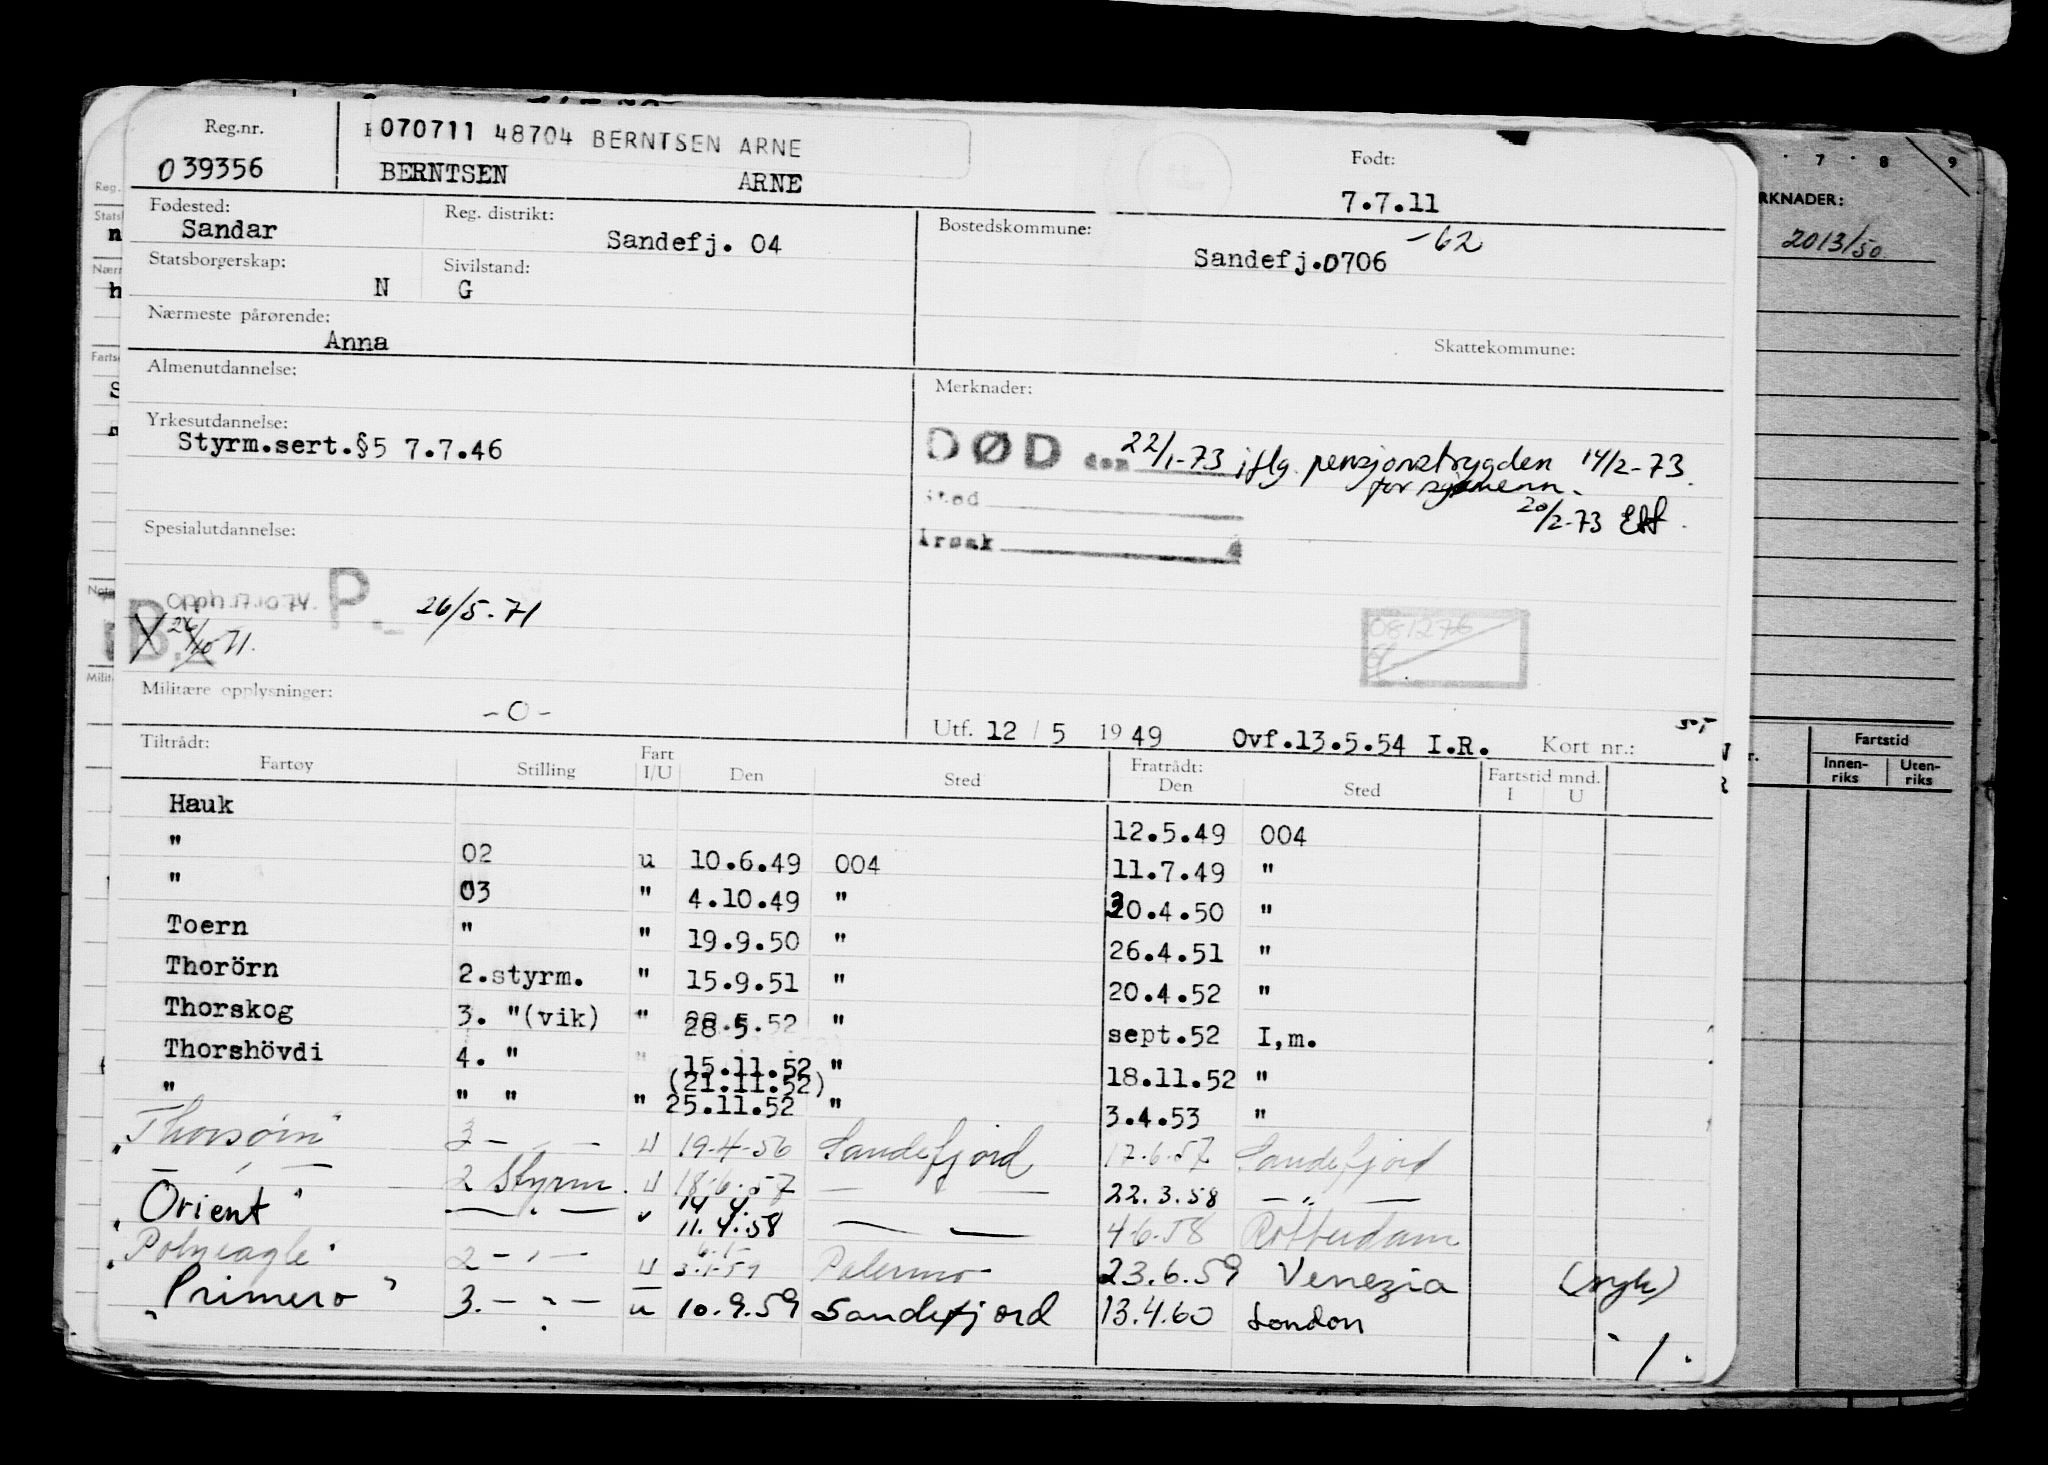 Reg.nr. 070711 48704 BERNTSEN ARNE Født:
039356 BERNTSEN ARNE 7.7.11
Fødested: Reg. distrikt: Bostedskommune: -62
Sandar Sandefj. 04 Sandefj.0706
Statsborgerskap: Sivilstand:
N G
Nærmeste pårørende:
Anna Skattekommune:
Almenutdannelse: Merknader:
Yrkesutdannelse:
Styrm.sert.§5 7.7.46
DØD den 22/1-73 iflg. pensjonstrygden 14/2-73.
for sjømenn.
sted 20/2-73
Årsak
Spesialutdannelse:
Opph.17.10.74. P. 26/5.71
B. 26/10 71.
081276
Militære opplysninger:
-0-
Utf. 12 / 5 1949 Ovf.13.5.54 I.R. Kort nr.: 50,-
Tiltrådt: Fart Fratrådt: Fartstid mnd.
Fartøy Stilling I/U Den Sted Den Sted I U
Hauk 12.5.49 004
" 02 u 10.6.49 004 11.7.49 "
" 03 " 4.10.49 " 30.4.50 "
Toern " " 19.9.50 " 26.4.51 "
Thorörn 2.styrm. " 15.9.51 " 20.4.52 "
Thorskog 3. "(vik) " 28.5.52 " sept.52 I,m.
Thorshövdi 4. " " 15.11.52 " 18.11.52 "
(21.11.52)
" " " " 25.11.52 " 3.4.53 "
"Thorsørn" 3 - " - U 19-4-56 Sandefjord 17.6.57 Sandefjord
- " - 2 Styrm. U 18-6-57 - - 22.3.58 - " -
"Orient" - " - 11.4.58 - - 4-6-58 Rotterdam
"Polyeagle" 2 - " - U 3-1-59 Palermo 23.6.59 Venezia (syk)
"Primero" 3. - " - u 10.9.59 Sandefjord 13.4.60 London
7 8 9
RKNADER:
2013/50
Fartstid
Innen-riks Uten-riks